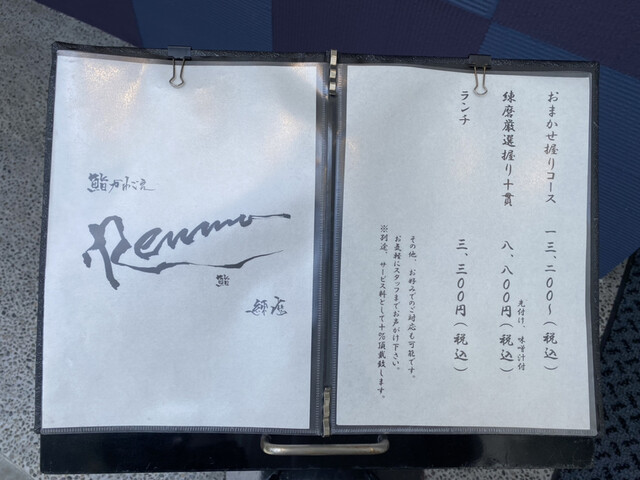 おまかせ握りコース 一三、二〇〇〜(税込)
練磨厳選握り十貫 八、八〇〇円(税込)
先付け、味噌汁付
ランチ 三、三〇〇円(税込)
その他、お好みでのご対応も可能です。
お気軽にスタッフまでお声がけ下さい。
※別途、サービス料として十%頂戴致します。
Renma
鮨
練磨